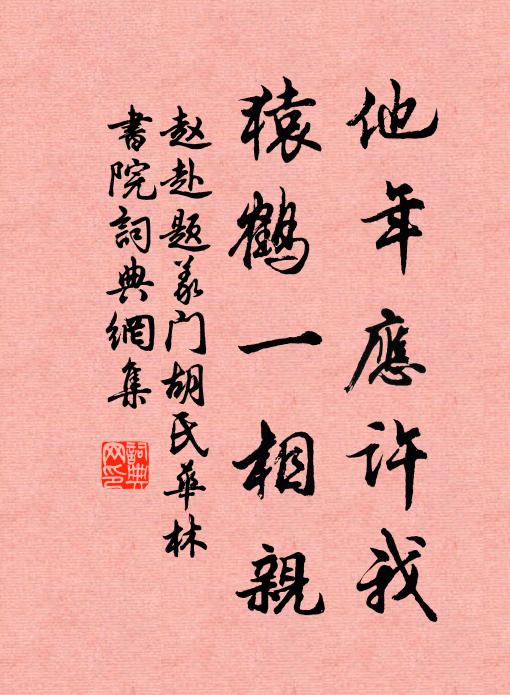 他年應許我
猿鶴一相親
赵赴题义门胡氏華林
書院詞典網集
詞典网印